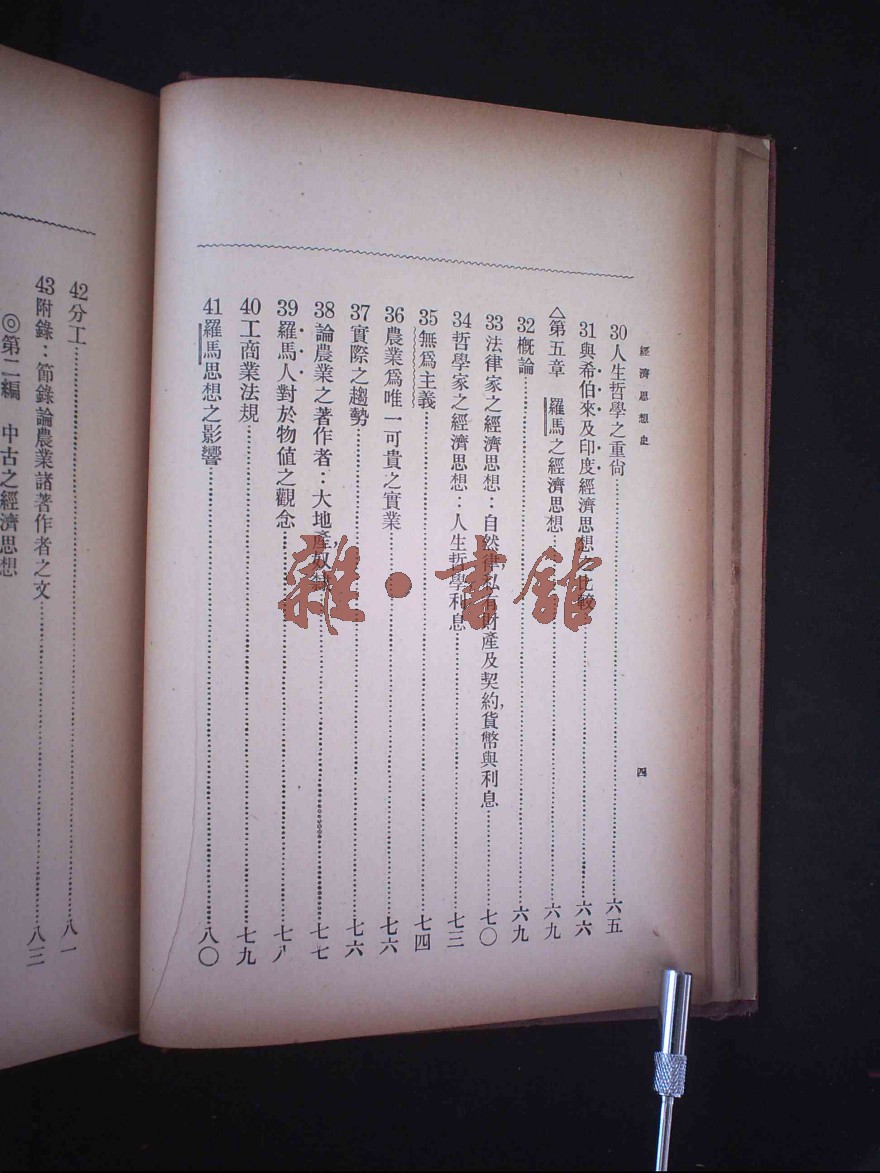 經濟思想史
四
30人生哲學之重尙……六五
31與希伯來及印度經濟思想之比較……六六
△第五章　羅馬之經濟思想……六九
32槪論……六九
33法律家之經濟思想：自然律，私有財產及契約，貨幣與利息……七〇
34哲學家之經濟思想：人生哲學利息……七三
35無爲主義……七四
36農業爲唯一可貴之實業……七六
37實際之趨勢……七六
38論農業之著作者：大地產，奴隸……七七
39羅馬人對於物值之觀念……七八
40工商業法規……七九
41羅馬思想之影響……八〇
42分工……八一
43附錄：節錄論農業諸著作者之文……八三
◎第二編　中古之經濟思想
雜·書館